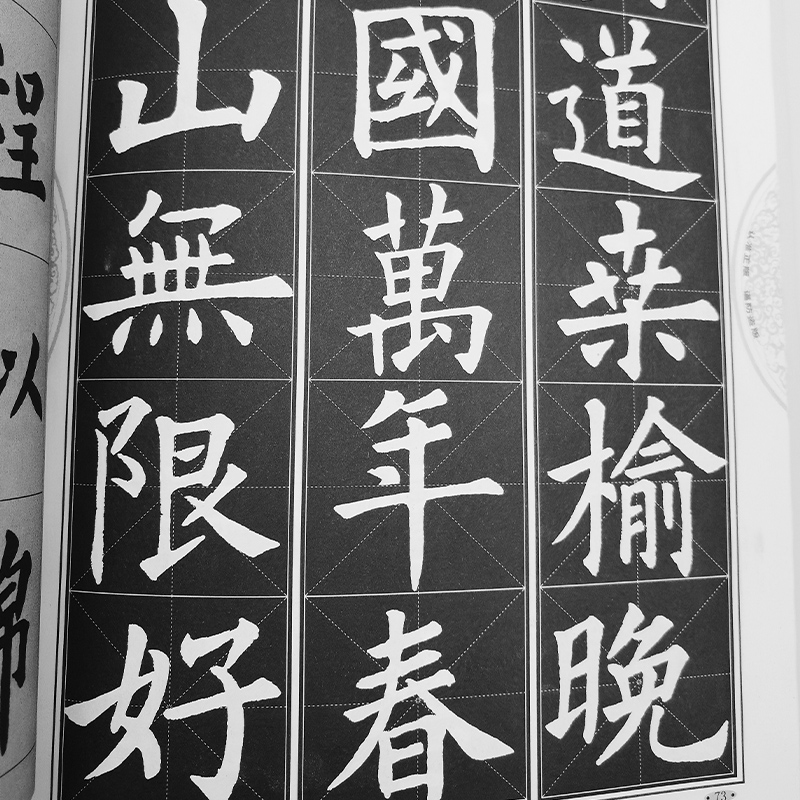 道桒榆晚
國萬年春
山無限好
程以
73